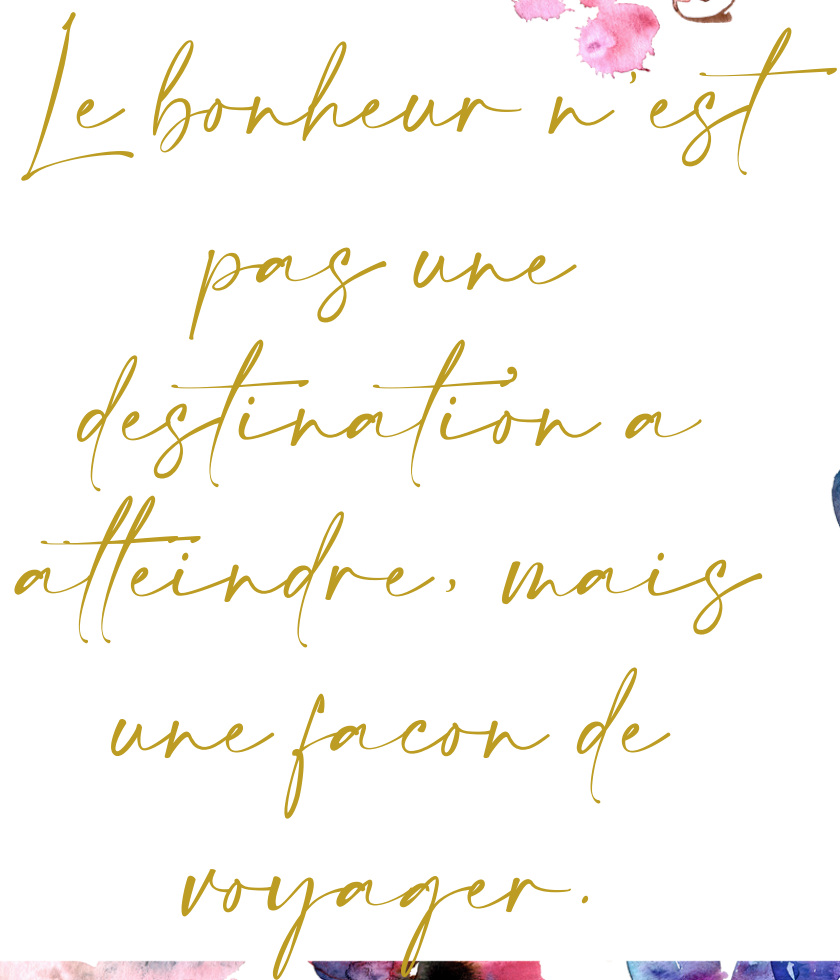 Le bonheur n'est
pas une
destination a
atteindre, mais
une facon de
voyager.